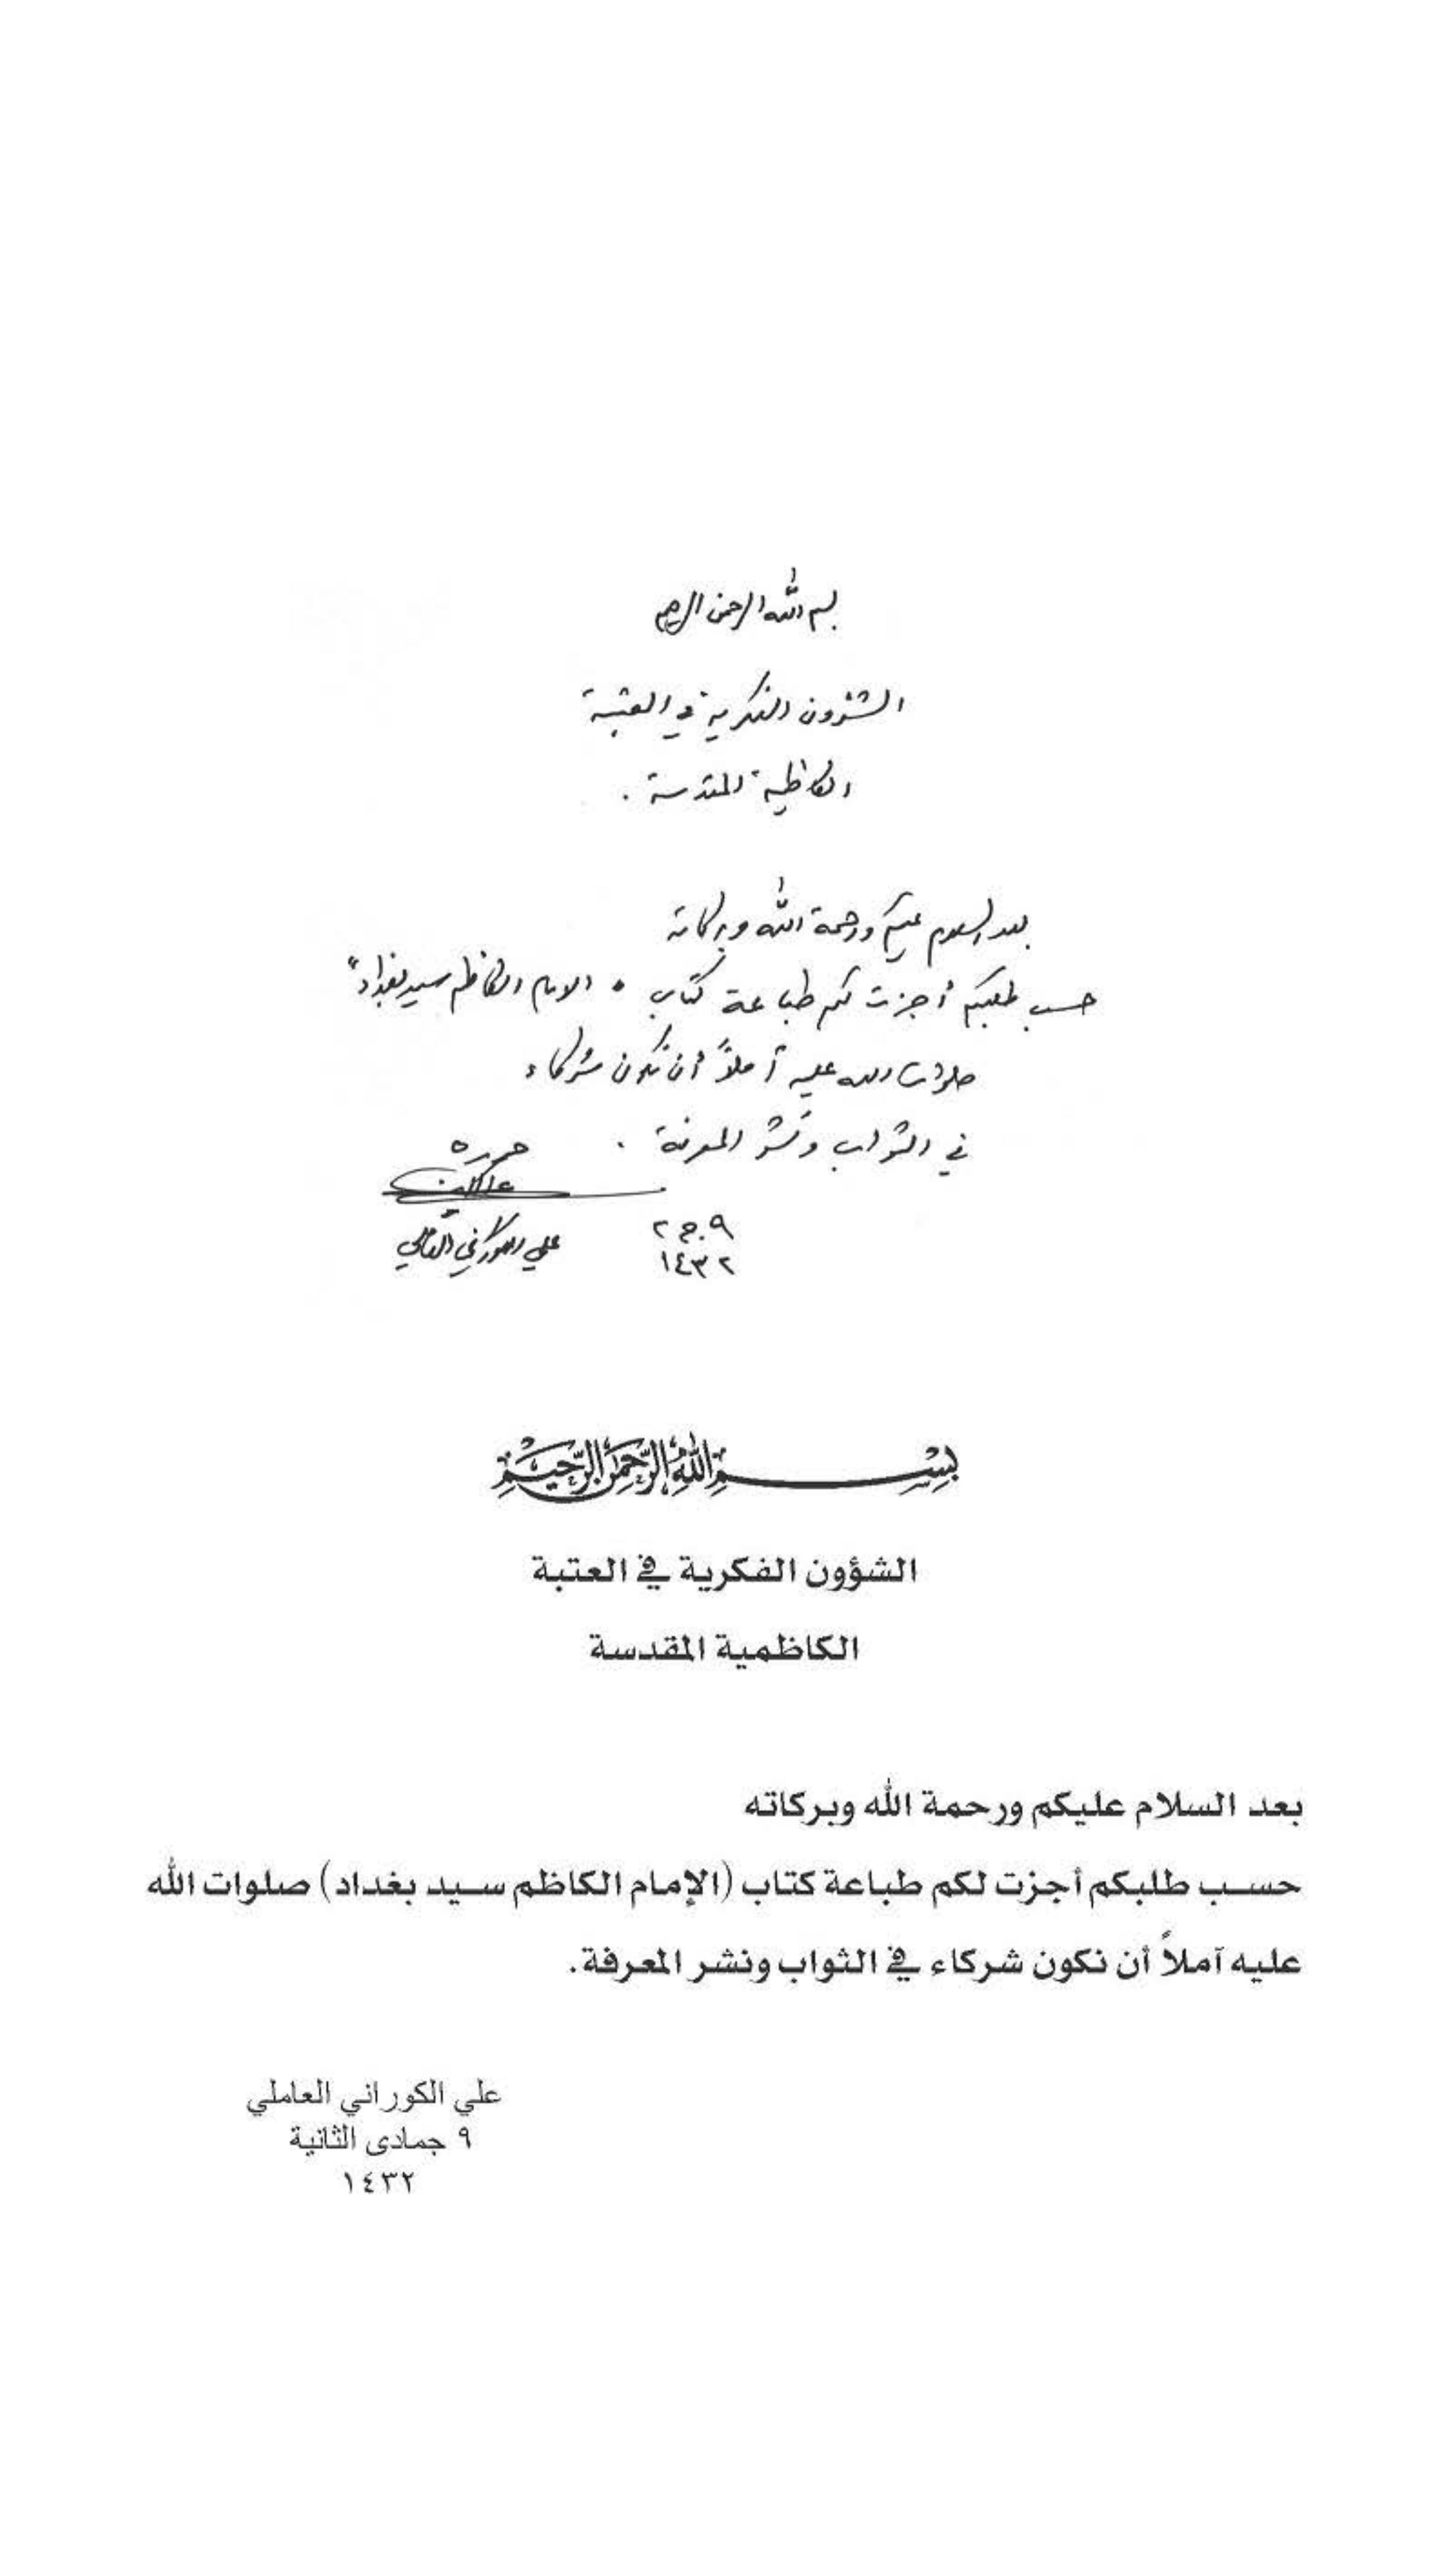 بسم الله الرحمن الرحيم
الشؤون الفكرية في العتبة
الكاظمية المقدسة .
بعد السلام عليكم ورحمة الله وبركاته
حسب طلبكم أجزت لكم طباعة كتاب " الامام الكاظم سيد بغداد "
صلوات الله عليه آملاً أن نكون شركاء
في الثواب ونشر المعرفة .
حرره
علي الكوراني العاملي
٩ ج ٢
١٤٣٢
بسم الله الرحمن الرحيم
الشؤون الفكرية في العتبة
الكاظمية المقدسة
بعد السلام عليكم ورحمة الله وبركاته
حسب طلبكم أجزت لكم طباعة كتاب (الإمام الكاظم سيد بغداد) صلوات الله
عليه آملاً أن نكون شركاء في الثواب ونشر المعرفة.
علي الكوراني العاملي
٩ جمادى الثانية
١٤٣٢